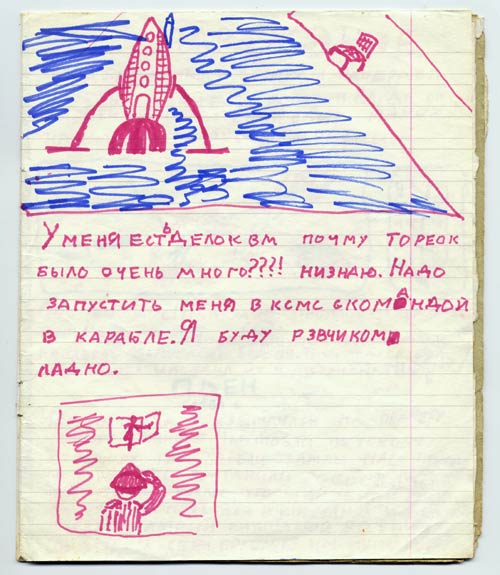 У МЕНЯ ЕСТЬ ДЕЛО К ВМ ПОЧМУ ТОРЕОК
БЫЛО ОЧЕНЬ МНОГО???! НИЗНАЮ. НАДО
ЗАПУСТИТЬ МЕНЯ В КСМС СКОМАНДОЙ
В КАРАБЛЕ. Я БУДУ РЗВЧИКОМ
ЛАДНО.